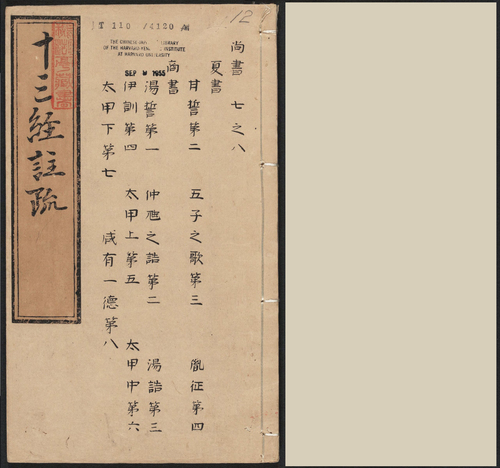 12
T 110 /4180 A
THE CHINESE-
LIBRARY
OF THE HARVARD
INSTITUTE
AT HARVARD UNIVERSITY
SEP 1955
尚書 七之八
夏書
甘誓第二 五子之歌第三 胤征第四
商書
湯誓第一 仲虺之誥第二 湯誥第三
伊訓第四 太甲上第五 太甲中第六
太甲下第七 咸有一德第八
十三經註疏